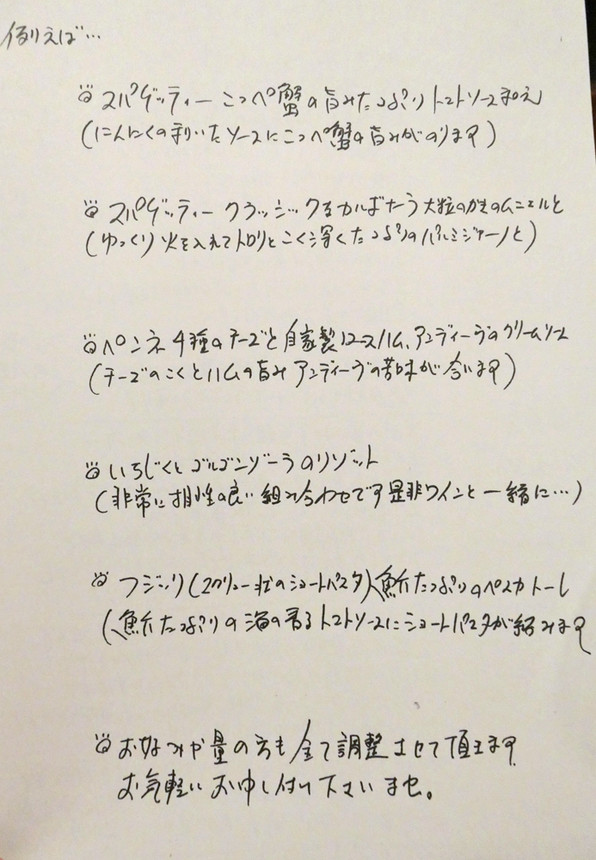 例えば…
スパゲッティー こっペ蟹の旨みたっぷり トマトソース和え
(にんにくの利いたソースにこっペ蟹の旨みがのります)
スパゲッティー クラッシックなカルボナーラ 大粒のかきのムニエルと
(ゆっくり火を入れてトロリとこく深くたっぷりのパルミジャーノと)
ペンネ 4種のチーズと自家製ロースハム、アンディーヴのクリームソース
(チーズのこくとハムの旨み アンディーヴの苦味が合います)
いちじくとゴルゴンゾーラのリゾット
(非常に相性の良い組み合わせです是非ワインと一緒に…)
フジッリ(スクリュー状のショートパスタ)魚介たっぷりのペスカトーレ
(魚介たっぷりの海の香るトマトソースにショートパスタが絡みます
お好みや量の方も全て調整させて頂きます
お気軽にお申し付け下さいませ。